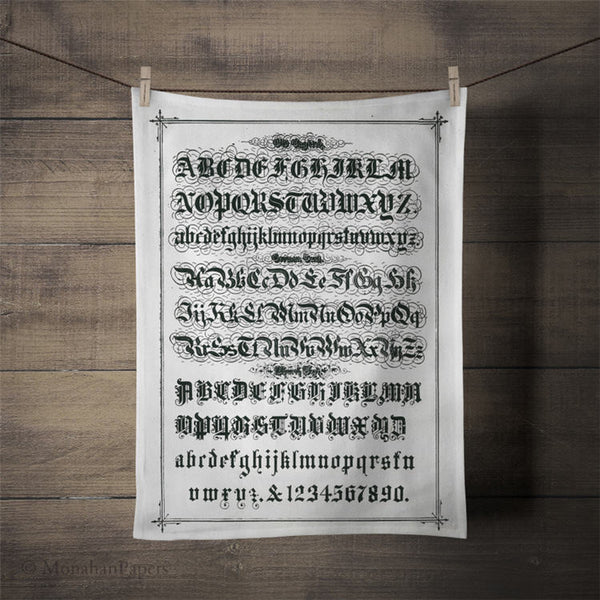 Old English.
ABCDEFGHIJKLM
NOPQRSTUVWXYZ.
abcdefghijklmnopqrstuvwxyz.
German Text.
AaBbCcDdEeFfGgHh
IijKkLlMmNnOoPpQq
RrSsTtUuVvWwXxYyZz
ABCDEFGHIJKLMN
OPQRSTUVWXYZ
abcdefghijklmnopqrstu
vwxyz. & 1234567890.
© MonahanPapers